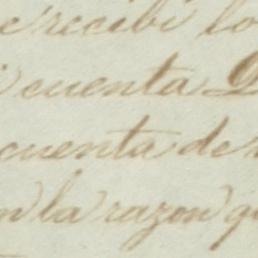 recibi lo
cuenta
cuenta de
n la razon q